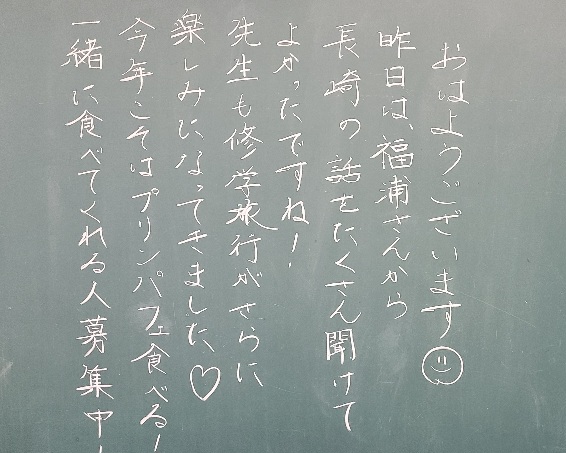 おはようございます☺
昨日は、福浦さんから
長崎の話をたくさん聞けて
よかったですね!
先生も修学旅行がさらに
楽しみになってきました♡
今年こそはプリンパフェ食べる!
一緒に食べてくれる人募集中!